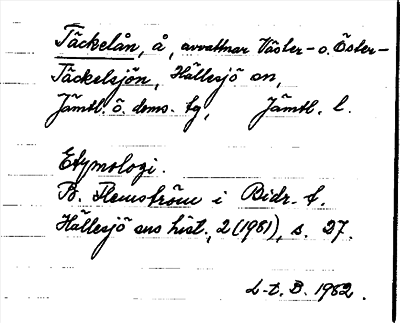 Täckelån, å, avvattnar Väster- o. Öster-
Täckelsjön, Hällesjö sn,
Jämtl. ö. doms. tg, Jämtl. l.
Etymologi.
B. Flemström i Bidr. t.
Hällesjö sns hist., 2 (1961), s. 27.
L-t. B. 1962.